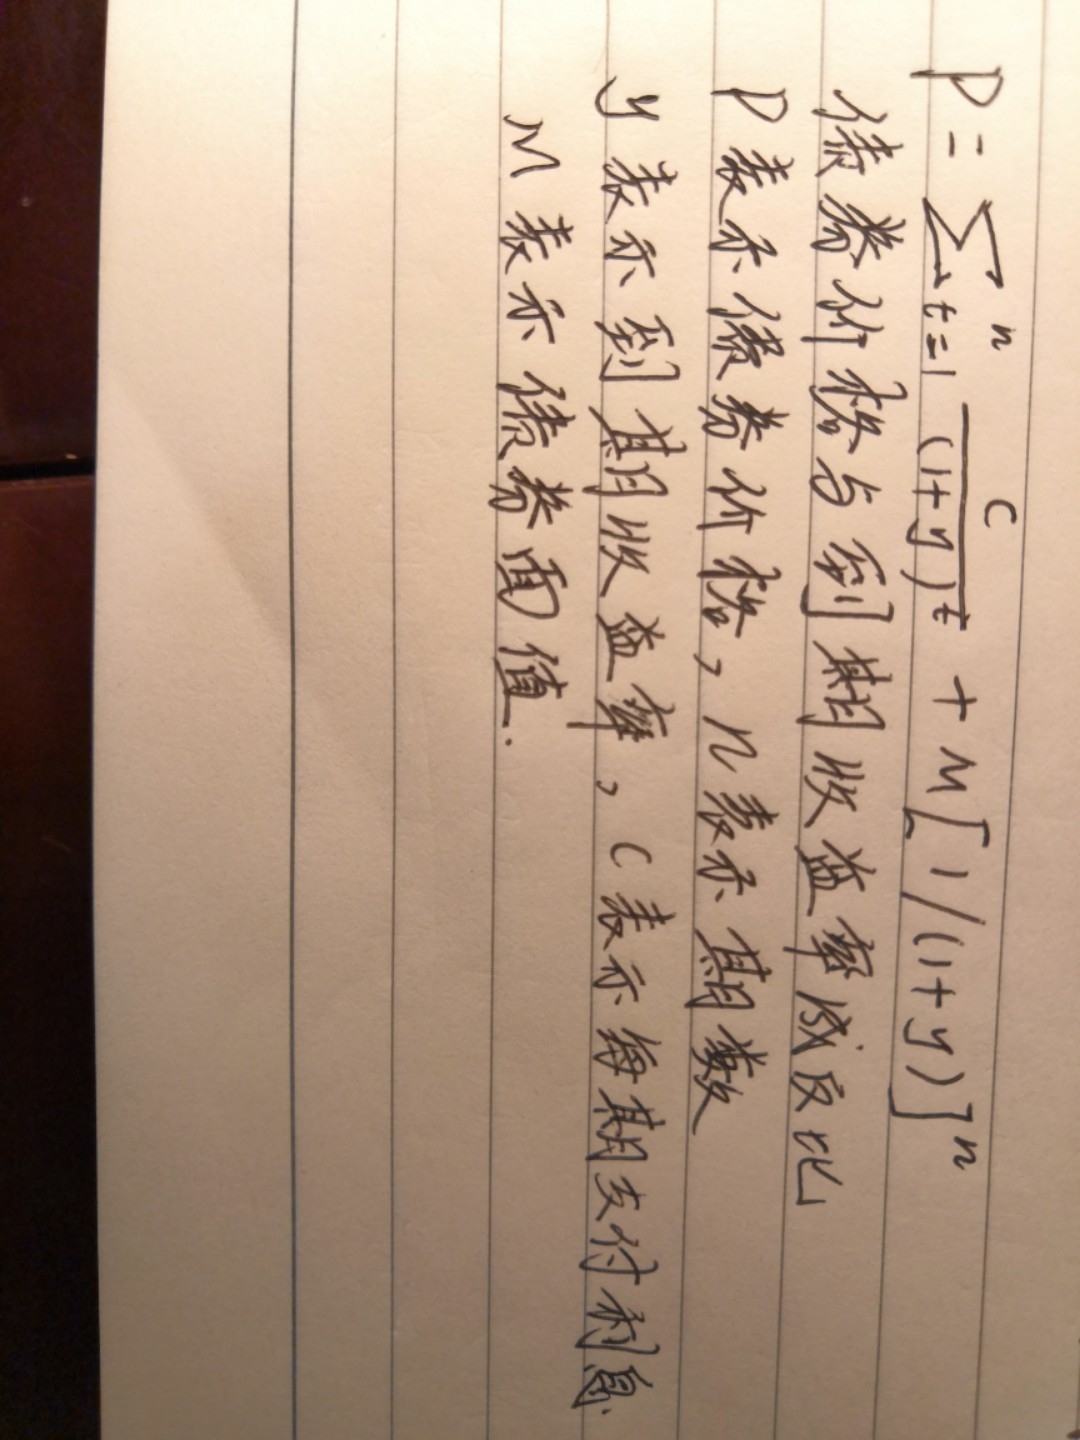 P = ∑ⁿₜ₌₁ C/(1+y)ᵗ + M[1/(1+y)]ⁿ
债券价格与到期收益率成反比
P表示债券价格，n表示期数
y表示到期收益率，C表示每期支付利息
M表示债券面值.